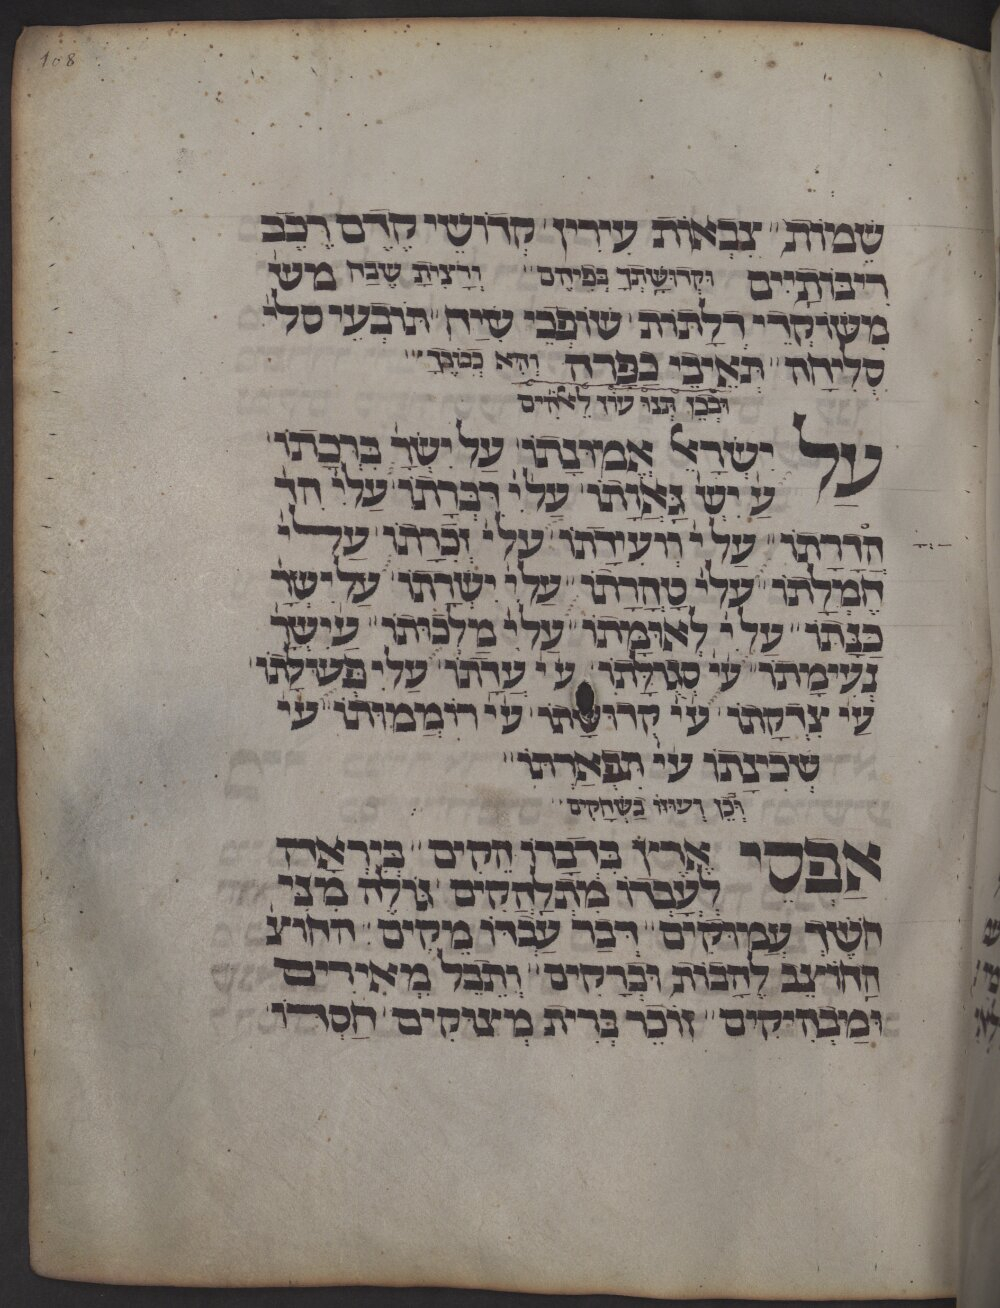 108
שֵׁמוֹת" צִבְאוֹת עִירִין" קְדוֹשֵׁי קֶדֶם רֶכֶב
רִיבּוֹתַיִים וּקְדוּשָׁתְךָ בְּפִיהֶם" וְרָצִיתָ שֶׁבַח מש
מִשׁוֹקְדֵי דְלָתוֹת" שׁוֹפְכֵי שִׂיחַ" תּוֹבְעֵי סלי
סְלִיחָה" תְּאֵיבֵי כַפָּרָה וְהָא כְּטוּבְךָ"
וּבְכֵן תְּנוּ עוֹז לֵאלֹהִים
עַל יִשְׂרָאֵ' אֱמוּנָתוֹ" עַל יִשְׂרָ' בִּרְכָתוֹ
עַ יִשְׂ' גַּאֲוָתוֹ" עַל יִ' דִּבְרָתוֹ" עַל יִ' הד
הַדְרָתוֹ" עַל יִ' וְועִידָתוֹ" עַל יִ' זְכִרָתוֹ" עַל יִ'
חֶמְלָתוֹ" עַל יִ' טָהֳרָתוֹ" עַל יִ' יִשְׁרָתוֹ" עַל ישר
כַּנָּתוֹ" עַל יִ' לְאוּמָּתוֹ" עַל יִ' מַלְכוּתוֹ" עַ ישר
נְעִימָתוֹ" עַ יִ' סְגוּלָּתוֹ" עַ יִ' עֲדָתוֹ" עַל יִ' פְּעוּלָּתוֹ
עַ יִ' צִדְקָתוֹ" עַ יִ' קְדוּשָּׁתוֹ" עַ יִ' רוֹמְמוּתוֹ" עַ י
שְׁכִינָתוֹ עַ יִ' תִּפְאַרְתּוֹ"
וּבְכֵן וְעוּזּוֹ בַּשְּׁחָקִים"
אַפְסֵי אֶרֶץ בְּדָבְרוֹ הֵקִים" בְּיִרְאָה
לְעָבְדוֹ מִתְלַהֲקִים" גּוֹלֶה מִנֵּי
חֹשֶׁךְ עֲמוּקִים" דְּבַר עַבְדּוֹ מֵקִים" החוצ
הַחוֹצֵב לֶהָבוֹת וּבְרָקִים" וְתֵבֵל מְאִירִים
וּמַבְהִיקִים" זוֹכֵר בְּרִית מְצוּקִים" חַסְדּוֹ